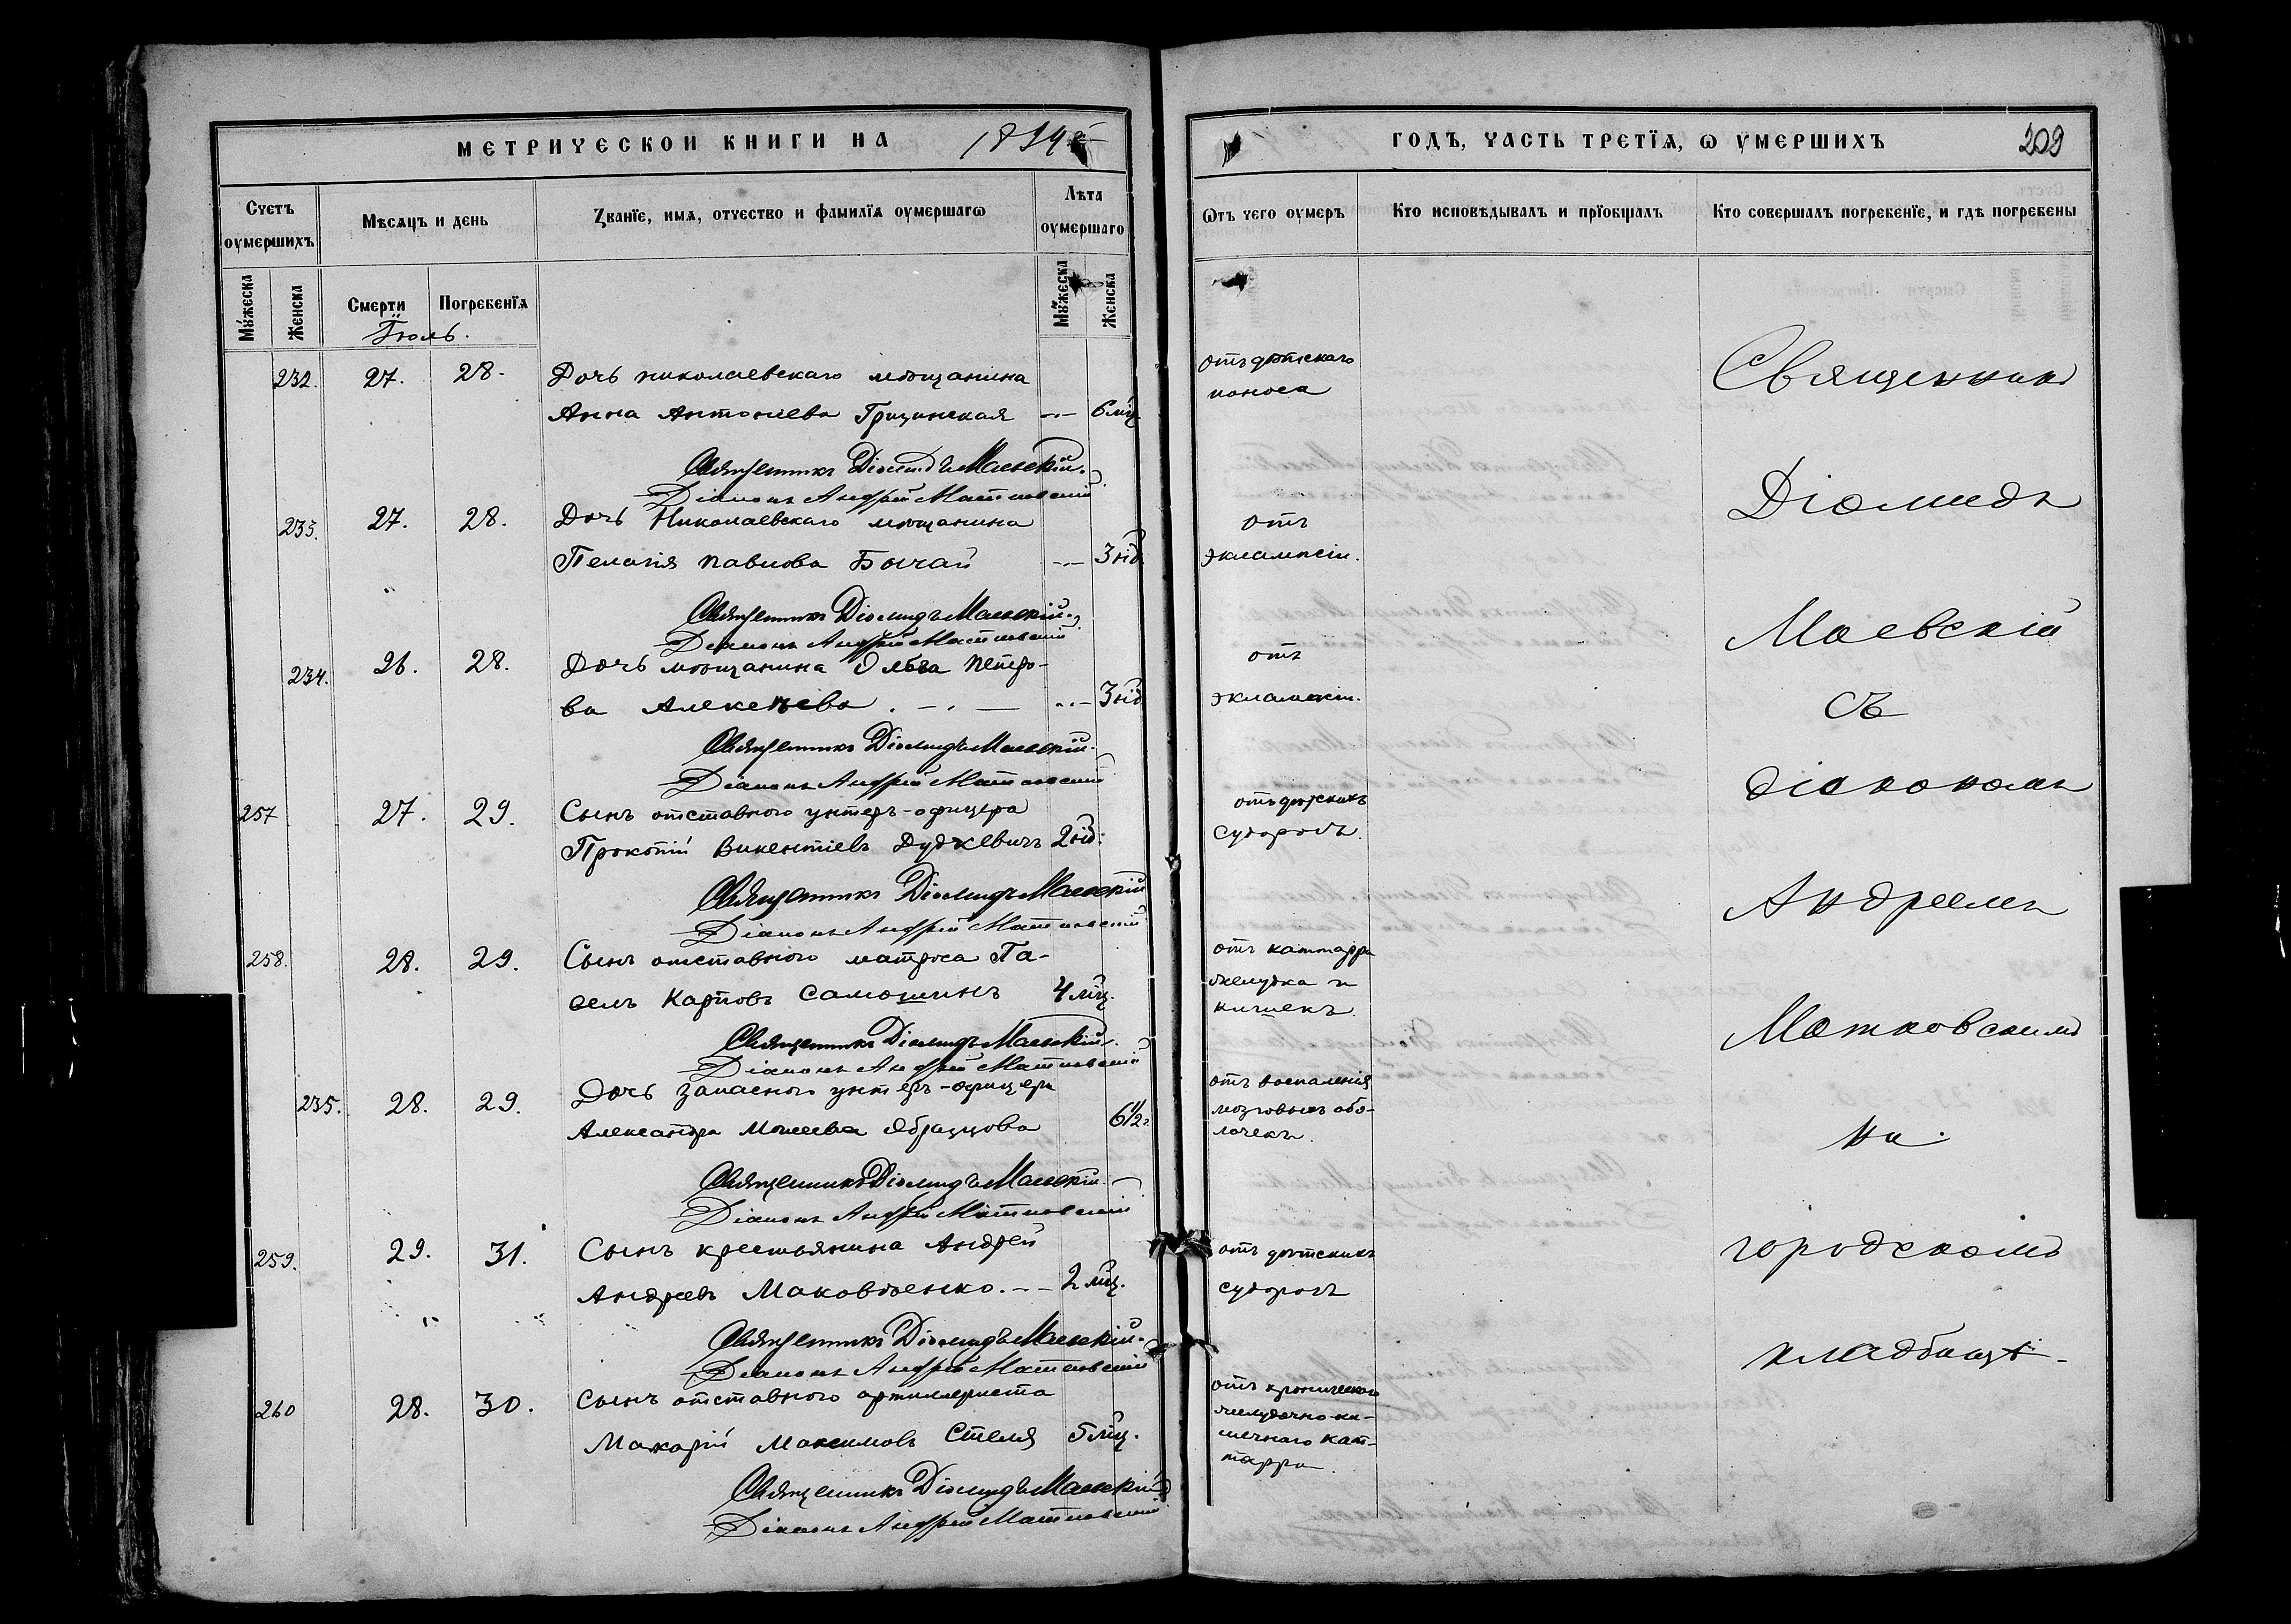 МЕТРИЧЕСКОИ КНИГИ НА 1894
ГОДЪ, ЧАСТЬ ТРЕТІѦ, Ѡ УМЕРШИХЪ 209
Счетъ оумершихъ
Мѣсѧцъ и день
Званїе, имѧ, отчество и фамилїѧ оумершагѡ
Лѣта оумершаго
Ѿтъ чего оумеръ
Кто исповѣдывалъ и прїобщалъ
Кто совершалъ погребенїе, и гдѣ погребены
Мꙋжеска
Женска
Смерти
Погребенїѧ
Мꙋжеска
Женска
Іюль.
232. 27. 28. Дочь николаевскаго мѣщанина
Анна Антоніева Грицинская 6 мц.
отъ дѣтскаго
поноса
Священникъ Діомидъ Маевскій.
Діаконъ Андрей Матковскій
233. 27. 28. Дочь Николаевскаго мѣщанина
Пелагія Павлова Бычай 3 нд.
отъ
эклампсіи.
Священникъ Діомидъ Маевскій.
Діаконъ Андрей Матковскій
234. 26. 28. Дочь мѣщанина Ольга Петро-
ва Алексѣева 3 нд.
отъ
эклампсіи.
Священникъ Діомидъ Маевскій.
Діаконъ Андрей Матковскій
257 27. 29. Сынъ отставного унтеръ-офицера
Прокопій Викентіевъ Дудкевичъ 2 нд.
отъ дѣтскихъ
судорогъ.
Священникъ Діомидъ Маевскій
Діаконъ Андрей Матковскій
258. 28. 29. Сынъ отставного матроса Па-
велъ Карповъ Самошинъ 4 мц.
отъ каттарра
желудка и
кишекъ.
Священникъ Діомидъ Маевскій.
Діаконъ Андрей Матковскій
235. 28. 29. Дочь запасного унтеръ-офицера
Александра Моисеева Образцова 6 1/2 г.
отъ воспаленія
мозговыхъ обо-
лочекъ.
Священникъ Діомидъ Маевскій.
Діаконъ Андрей Матковскій
259. 29. 31. Сынъ крестьянина Андрей
Андреевъ Маковѣенко. 2 мц.
отъ дѣтскихъ
судорогъ
Священникъ Діомидъ Маевскій.
Діаконъ Андрей Матковскій
260 28. 30. Сынъ отставного артиллериста
Макарій Максимовъ Стеля 5 мц.
отъ хроническаго
желудочно-ки-
шечнаго кат-
тарра.
Священникъ Діомидъ Маевскій
Діаконъ Андрей Матковскій
Священникъ
Діомидъ
Маевскій
съ
діакономъ
Андреемъ
Матковскимъ
на
городскомъ
кладбищѣ.